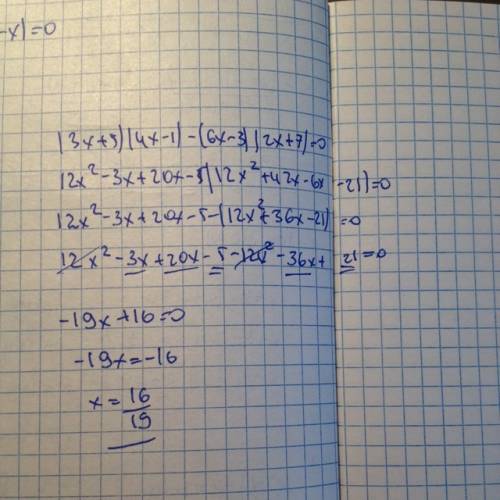 -x)=0
(3x+5)(4x-1)-(6x-3)(2x+7)=0
12x²-3x+20x-5(12x²+42x-6x-21)=0
12x²-3x+20x-5-(12x²+36x-21)=0
12x²-3x+20x-5-12x²-36x+21=0
-19x+16=0
-19x=-16
x=16/19